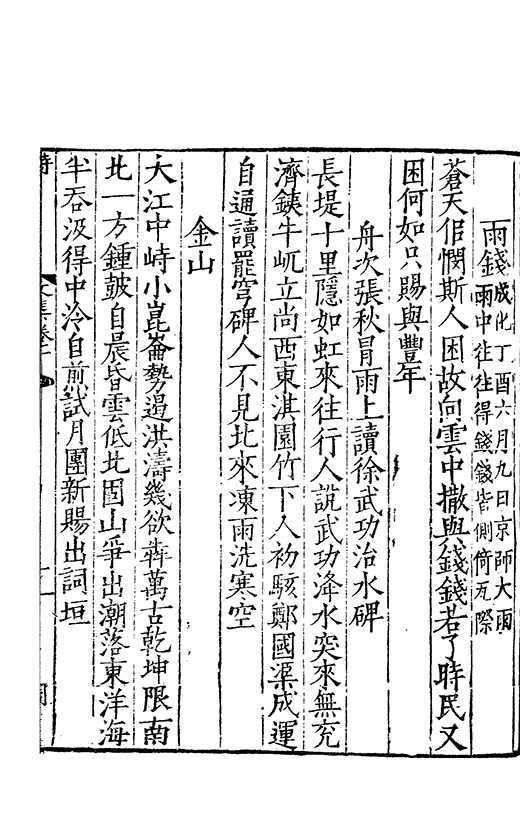 雨錢成化丁酉六月九日京師大雨
雨中往往得錢錢皆側倚瓦際
蒼天佀憫斯人困故向雲中撒與錢錢若了時民又
困何如只賜與豐年
舟次張秋冐雨上讀徐武功治水碑
長堤十里隱如虹來往行人說武功洚水突來無兖
濟銕牛屹立尚西東淇園竹下人初駭鄭國渠成運
自通讀罷穹碑人不見北來凍雨洗寒空
金山
大江中峙小崑崙勢遏洪濤幾欲犇萬古乾坤限南
北一方鍾皷自晨昏雲低北固山爭出潮落東洋海
半吞汲得中泠自煎試月團新賜出詞垣